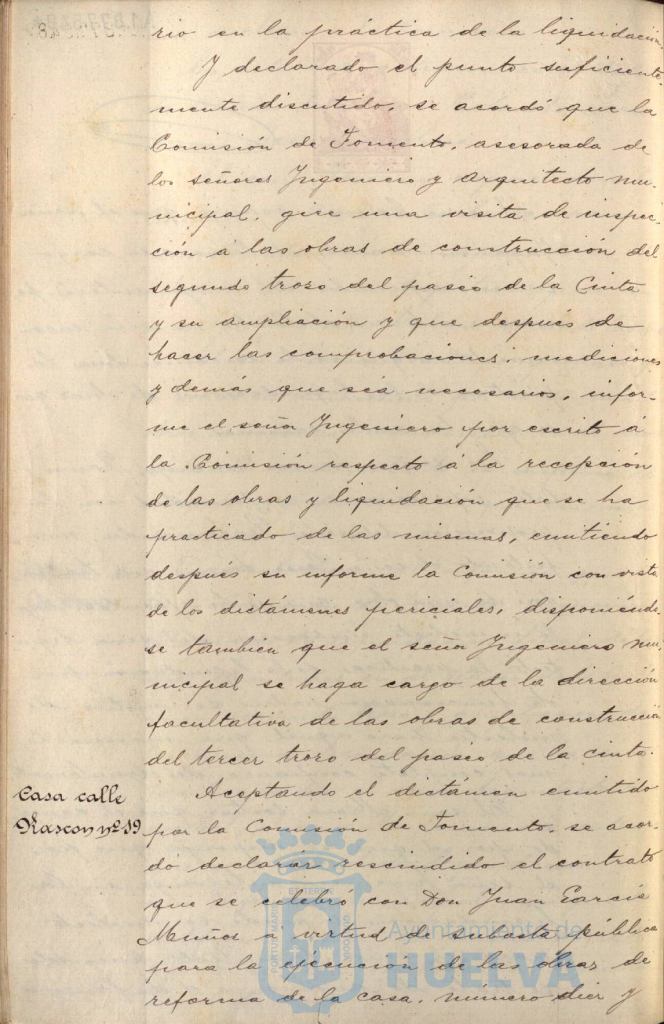 rio en la práctica de la liquidación
Y declarado el punto suficiente-
mente discutido, se acordó que la
Comisión de Fomento, asesorada de
los señores Ingeniero y Arquitecto mu-
nicipal, gire una visita de inspec-
ción á las obras de construcción del
segundo trozo del paseo de la Cinta
y su ampliación y que después de
hacer las comprobaciones, mediciones
y demás que sea necesarios, infor-
me el señor Ingeniero por escrito á
la Comisión respecto á la recepción
de las obras y liquidación que se ha
practicado de las mismas, emitiendo
después su informe la Comisión con vista
de los dictámenes periciales, disponiéndo
se también que el señor Ingeniero mu-
nicipal se haga cargo de la dirección
facultativa de las obras de construcción
del tercer trozo del paseo de la cinta.
Casa calle
Rascon nº 19
Aceptando el dictámen emitido
por la Comisión de Fomento, se acor-
dó declarar rescindido el contrato
que se celebró con Don Juan García
Muños a virtud de subasta pública
para la ejecución de las obras de
reforma de la casa, número diez y
Ayuntamiento de
HUELVA